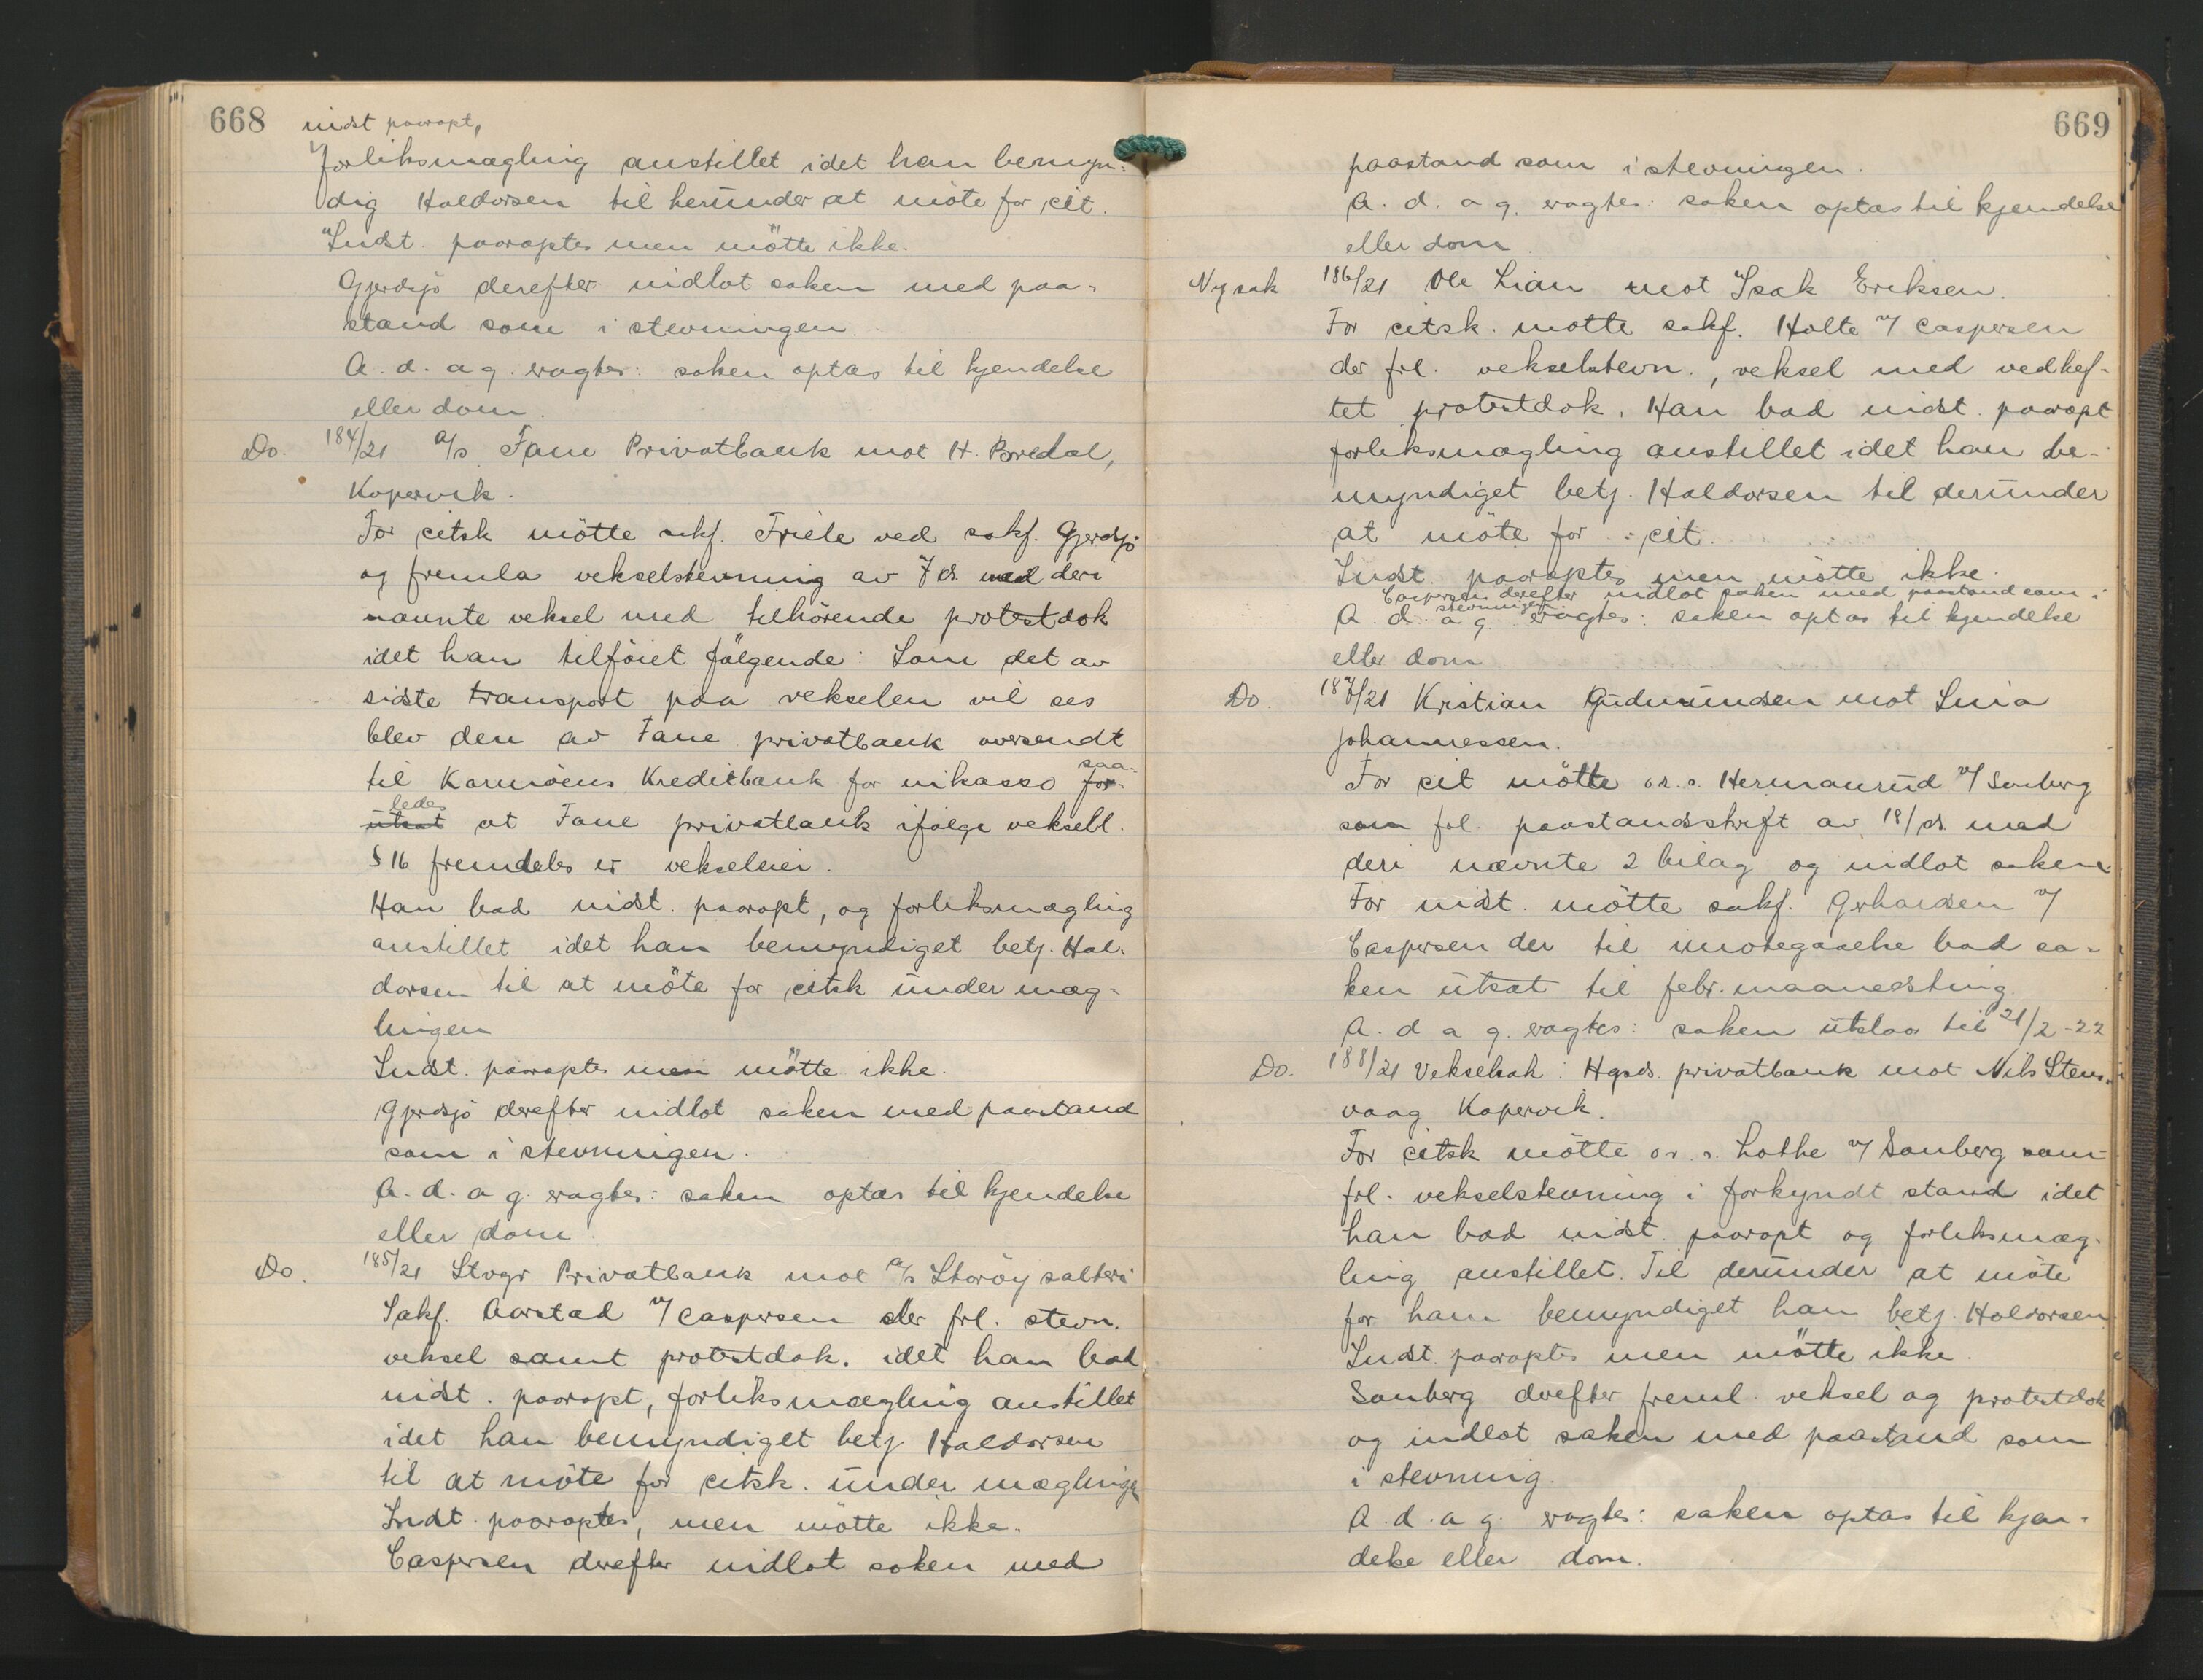 668
indst paaropt,
forliksmægling anstillet idet han bemyn-
dig Haldorsen til herunder at möte for cit.
Indst. paaroptes men mötte ikke.
Gjerdsjö derefter indlot saken med paa-
stand som i stevningen.
A. d. a g. vagtes: saken optas til kjendelse
eller dom.
Do. 184/21 A/s Fane Privatbank mot H. Bredal,
Kopervik.
For citsk mötte sakf. Friele ved sakf. Gjerdsjö
og fremla vekselstevning av 7 ds. med deri
nævnte veksel med tilhörende protestdok
idet han tilföiet fölgende: Som det av
sidste transport paa vekselen vil ses
blev den av Fane privatbank oversendt
til Karmöens Kreditbank for inkasso for- saa-
utsat ledes at Fane privatbank ifölge veksell.
§ 16 fremdeles er vekseleier.
Han bad indst. paaropt, og forliksmægling
anstillet idet han bemyndiget betj. Hal-
dorsen til at möte for citsk under mæg-
lingen
Indst. paaroptes men mötte ikke.
Gjerdsjö derefter indlot saken med paastand
som i stevningen.
A. d. a g. vagtes: saken optas til kjendelse
eller dom.
Do. 185/21 Stvgr Privatbank mot A/s Storöy salteri
Sakf. Aarstad v/ Caspersen der frl. stevn.
veksel samt protestdok. idet han bad
indst. paaropt, forliksmægling anstillet
idet han bemyndiget betj. Haldorsen
til at möte for citsk. under mæglingen
Indst. paaroptes, men mötte ikke.
Caspersen derefter indlot saken med
669
paastand som i stevningen.
A. d. a g. vagtes: saken optas til kjendelse
eller dom.
Ny sak 186/21 Ole Lian mot Isak Eriksen.
For citsk. motte sakf. Holte v/ Caspersen
der frl. vekselstevn., veksel med vedhef-
tet protestdok. Han bad indst. paaropt
forliksmægling anstillet idet han be-
myndiget betj. Haldorsen til derunder
at möte for cit.
Indst. paaroptes men mötte ikke.
Caspersen derefter indlot saken med paastand som i
stevningen
A. d. a g. vagtes: saken optas til kjendelse
eller dom
Do. 187/21 Kristian Gudmundsen mot Lina
Johannessen.
For cit mötte o.r.s. Hermansrud v/ Sonberg
som frl. paastandsskrift av 18/ds. med
deri nævnte 2 bilag og indlot saken.
For indst. mötte sakf. Gerhardsen v/
Caspersen der til imotegaaelse bad sa-
ken utsat til febr. maanedsting.
A. d a g. vagtes: saken utstaar til 21/2-22
Do. 188/21 Vekselsak: Hgsds. privatbank mot Nils Stens-
vaag Kopervik.
For citsk mötte o.r.s. Lothe v/ Sonberg som
frl. vekselstevning i forkyndt stand idet
han bad indst. paaropt og forliksmæg-
ling anstillet. Til derunder at möte
for ham bemyndiget han betj. Haldorsen
Indst. paaroptes men mötte ikke.
Sonberg derefter freml. veksel og protestdok
og indlot saken med paastand som
i stevning.
A. d. a g. vagtes: saken optas til kjen-
delse eller dom.